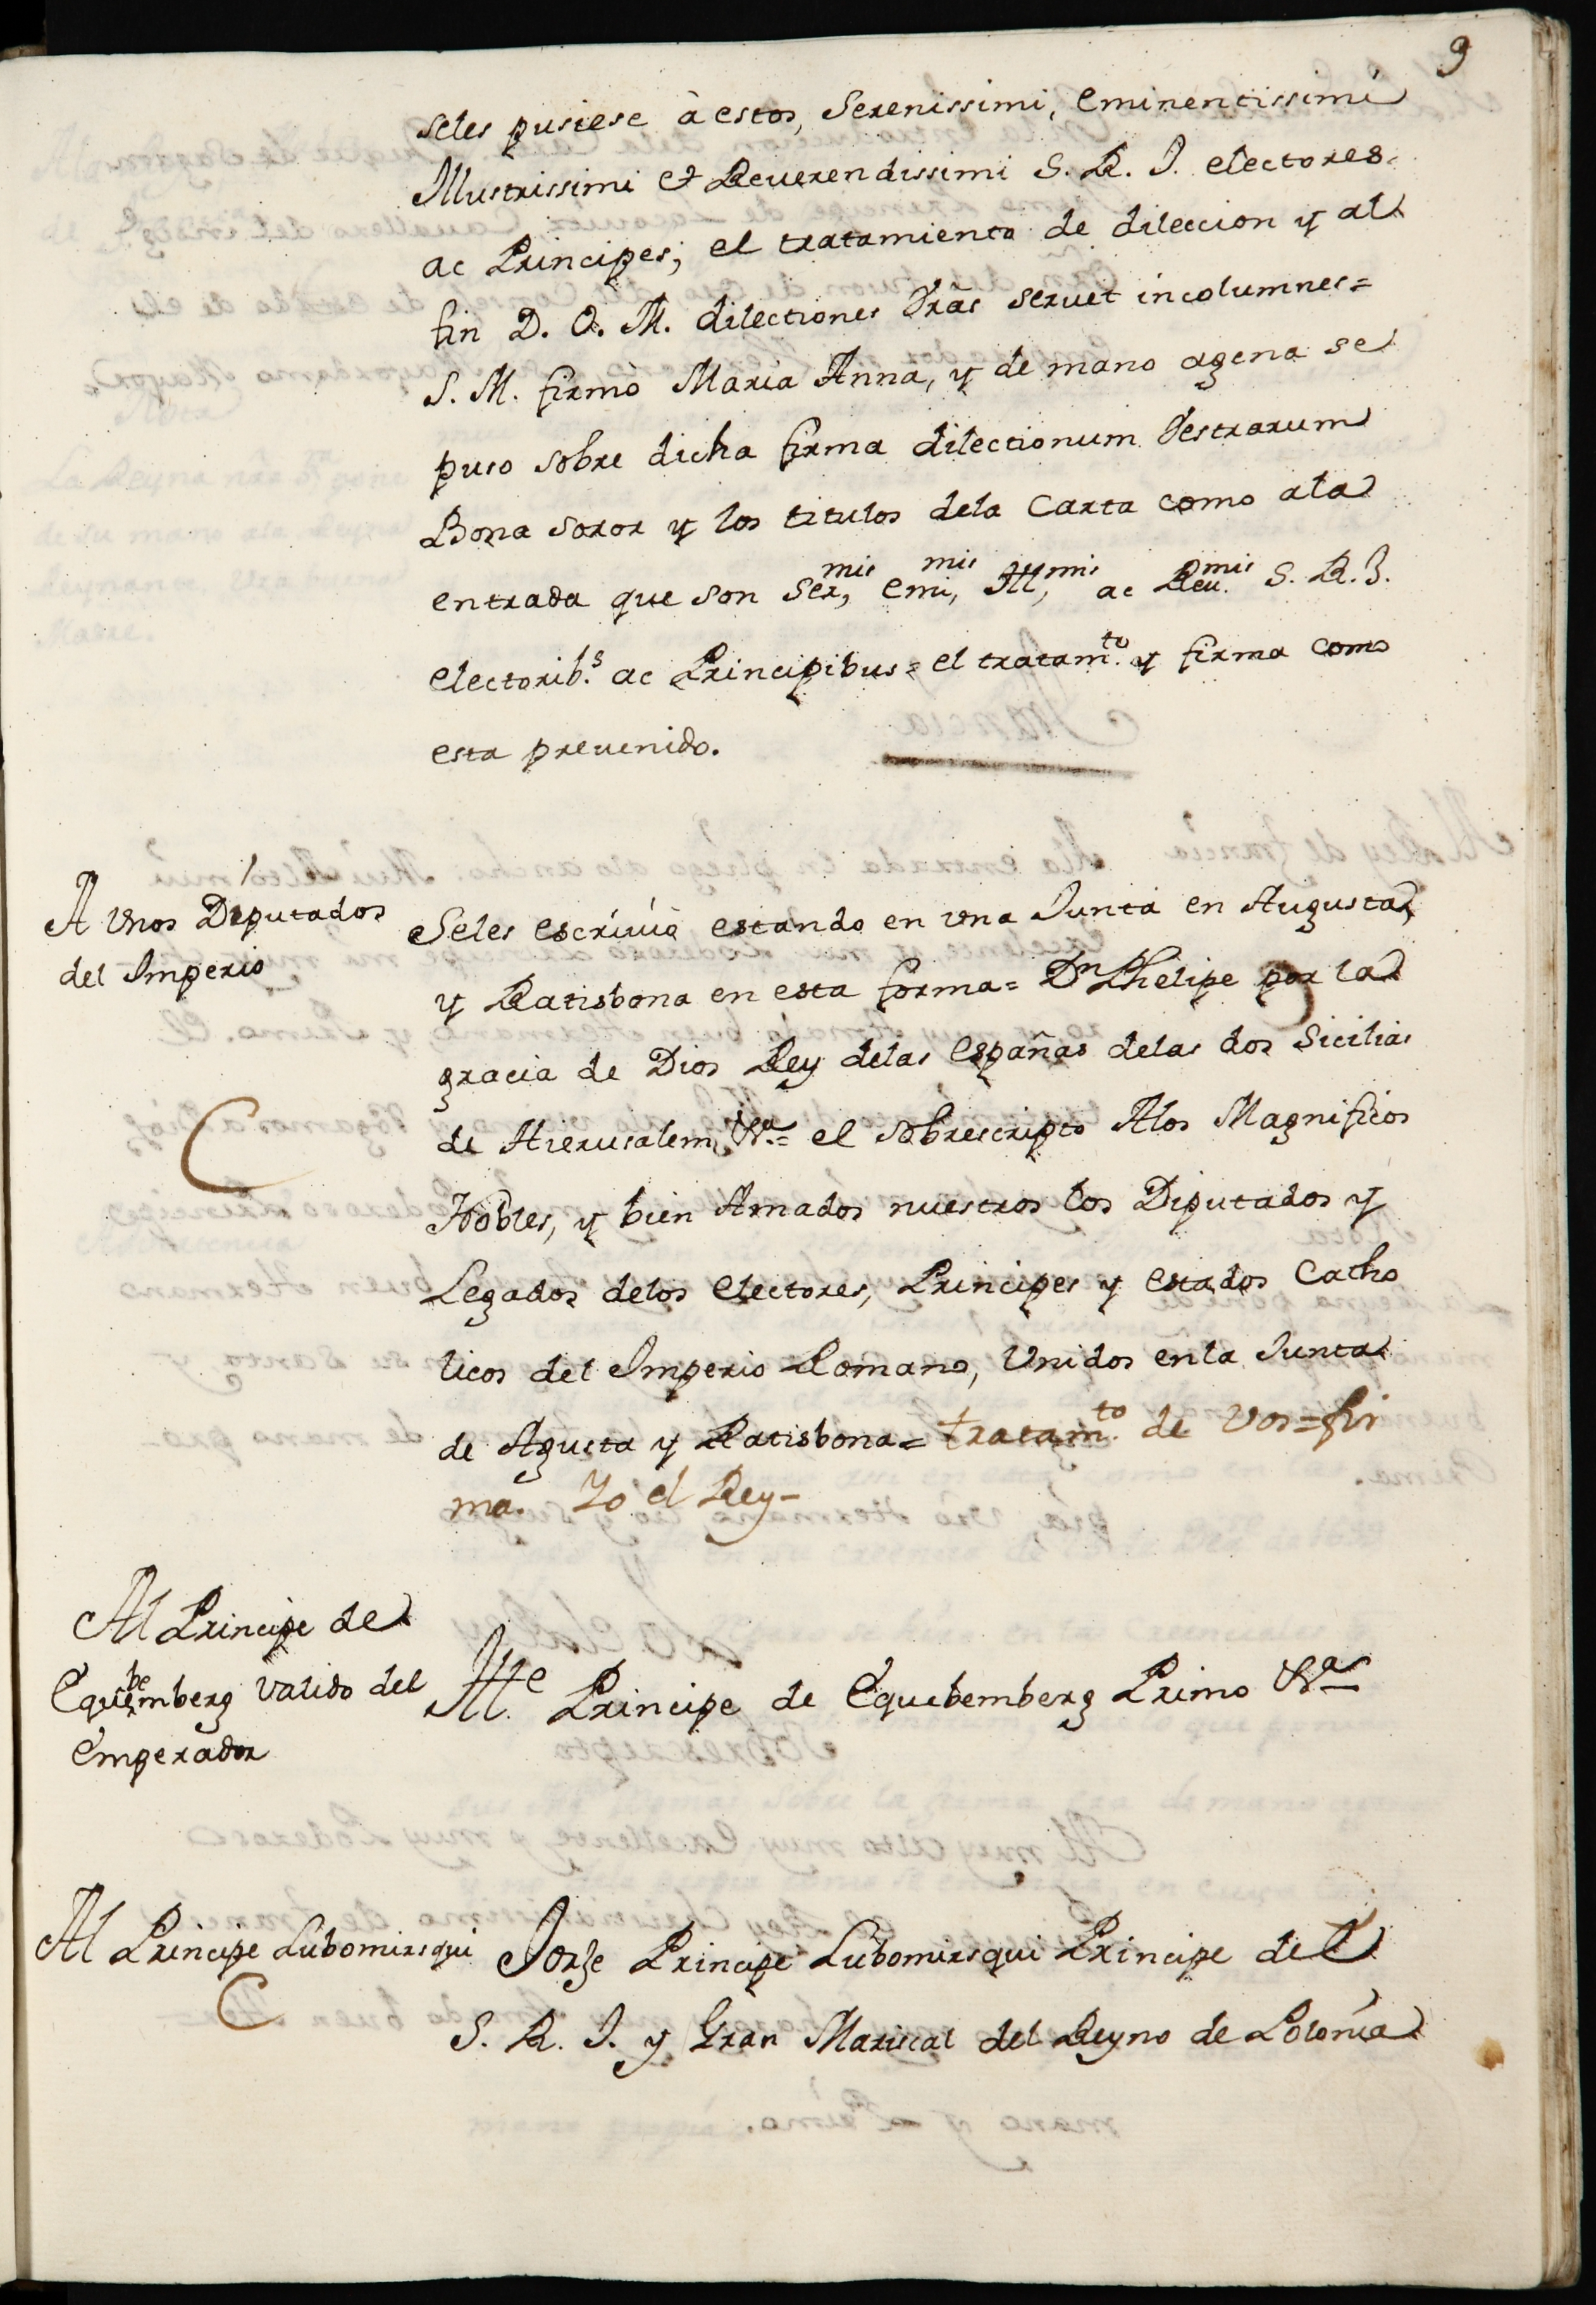 9
seles pusiese à estos, Serenissimi, Eminentissimi
Illustrissimi et Reuerendissimi S. R. I. electores
ac Principes; el tratamiento de dileccion y al
fin D. O. M. dilectiones Vras seruet incolumnes=
S. M. firmò Maria Anna, y de mano agena se
puso sobre dicha firma dilectionum Vestrarum
Bona soror y los titulos dela Carta como ala
entrada que son Ser,mis Emi,mis Ill,mis ac Reu.mis S. R. I.
Electorib.s ac Principibus= el tratam.to y firma como
esta preuenido.
A Vnos Diputados
del Imperio
Seles escriuiò estando en vna Junta en Augusta,
y Ratisbona en esta forma= Dn Phelipe por la
gracia de Dios Rey delas Españas delas dos Sicilias
de Hierusalem, &a= el sobrescripto Alos Magnificos
Nobles, y bien Amados nuestros los Diputados y
Legados delos Electores, Principes y Estados Catho
licos del Imperio Romano, Vnidos enla Junta
de Agusta y Ratisbona= tratam.to de Vos= fir
ma. Yo el Rey-
Al Principe de
Equebemberg Valido del
Emperador
Ille. Principe de Equebemberg Primo &a
Al Principe Lubomirsqui
C
Jorge Principe Lubomirsqui Principe del
S. R. I. y Gran Mariscal del Reyno de Polonia